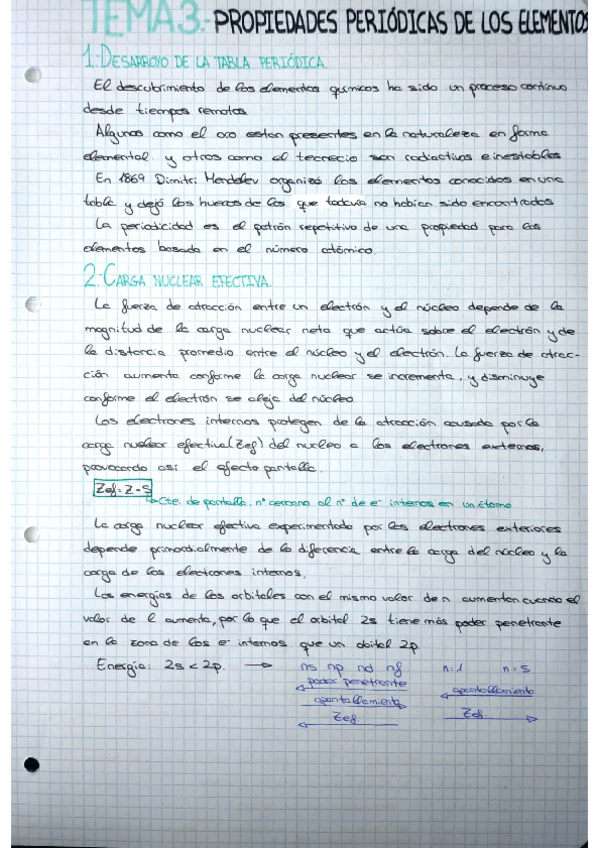 TEMA 3.- PROPIEDADES PERIÓDICAS DE LOS ELEMENTOS
1.- DESARROYO DE LA TABLA PERIÓDICA.
El descubrimiento de los elementos químicos ha sido un proceso continuo
desde tiempos remotos.
Algunos como el oro estan presentes en la naturaleza en forma
elemental y otros como el tecnecio son radiactivos e inestables
En 1869 Dimitri Mendelev organizó los elementos conocidos en una
tabla y dejó los huecos de los que todavia no habian sido encontrados
La periodicidad es el patrón repetitivo de una propiedad para los
elementos basada en el número atómico.
2.- CARGA NUCLEAR EFECTIVA.
La fuerza de atracción entre un electrón y el núcleo depende de la
magnitud de la carga nuclear neta que actúa sobre el electrón y de
la distancia promedio entre el núcleo y el electrón. La fuerza de atrac-
ción aumenta conforme la carga nuclear se incrementa, y disminuye
conforme el electrón se aleja del núcleo.
Los electrones internos protegen de la atracción causada por la
carga nuclear efectiva (Zef) del nucleo a los electrones externos,
provocando asi el efecto pantalla.
Zef = Z - S
Cte. de pantalla, nº cercano al nº de e- internos en un átomo
La carga nuclear efectiva experimentada por los electrones exteriores
depende primordialmente de la diferencia entre la carga del núcleo y la
carga de los electrones internos.
Las energías de los orbitales con el mismo valor de n aumentan cuando el
valor de l aumenta, por lo que el orbital 2s tiene más poder penetrante
en la zona de los e- internos que un obital 2p.
Energía: 2s < 2p. → ns np nd nf n=1 n=5
poder penetrante
apantallamiento apantallamiento
Zef Zef